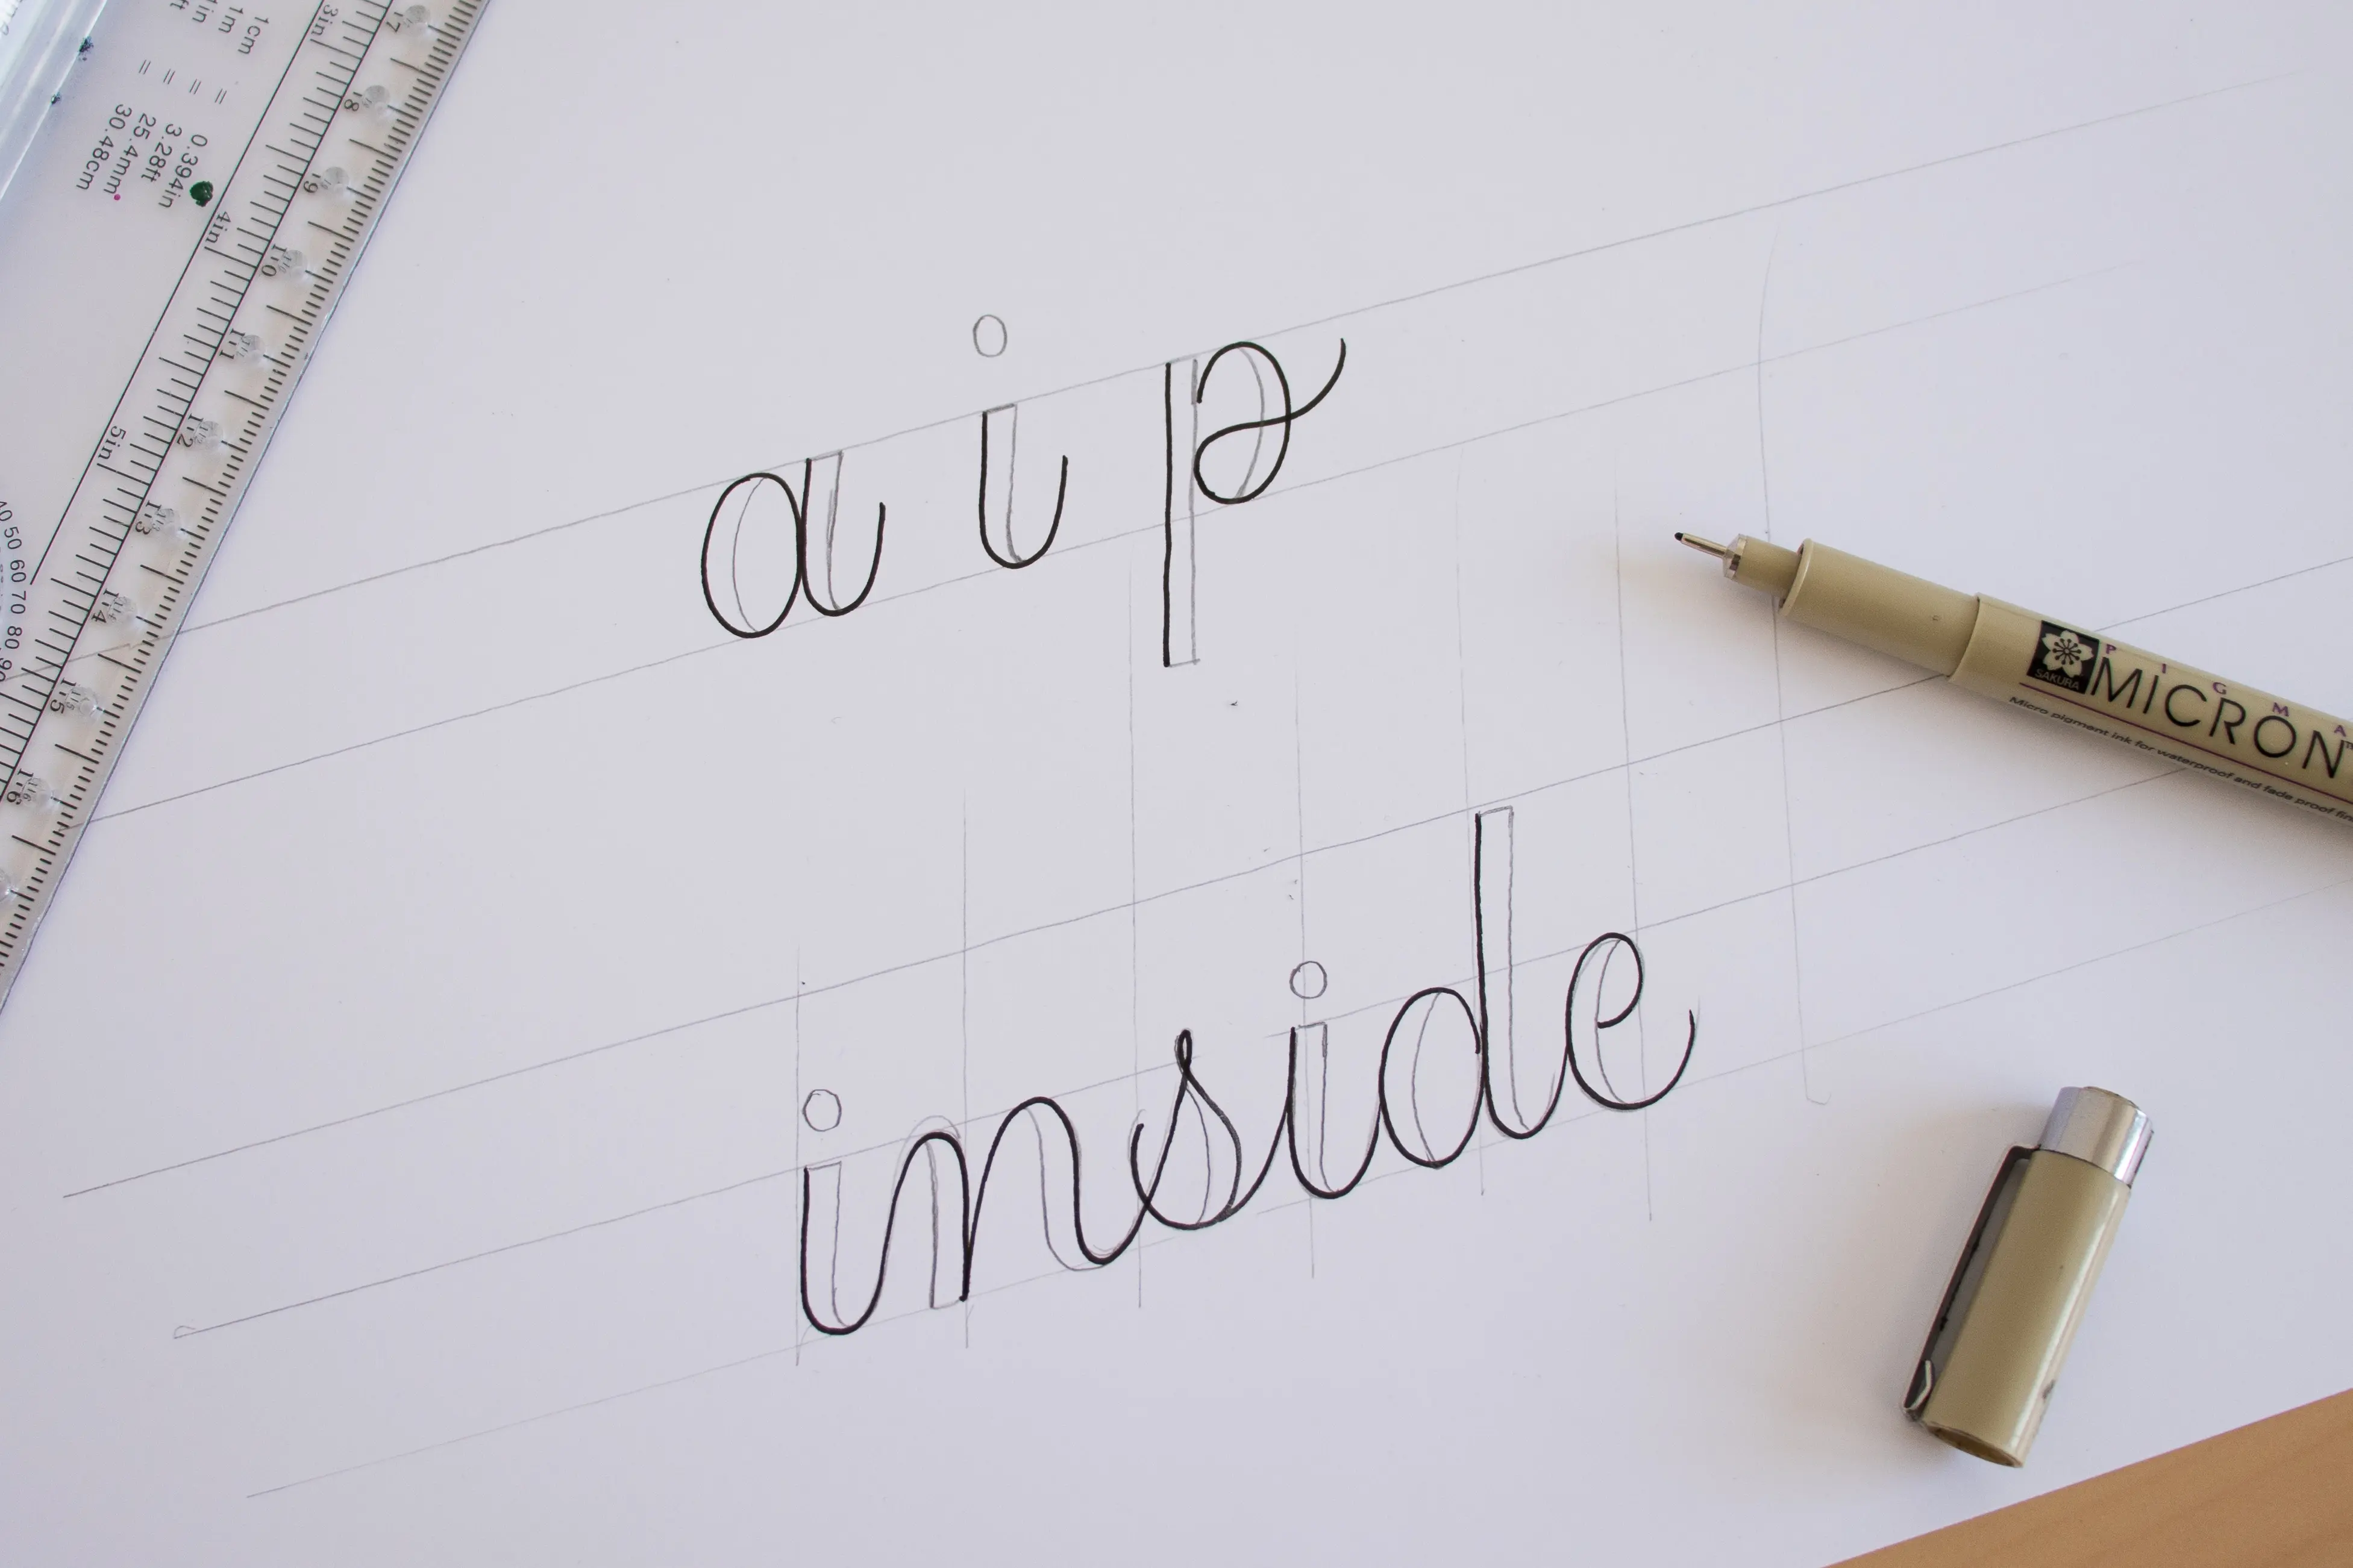 1cm = 0.394in
1m = 3.28ft
1in = 25.4mm
= 30.48cm
3in 4in 5in
7 8 9 10 11 12 13 14 15 16
40 50 60 70 80 90
a i p
inside
SAKURA
PIGMA
MICRON™
Micro pigment ink for waterproof and fade proof